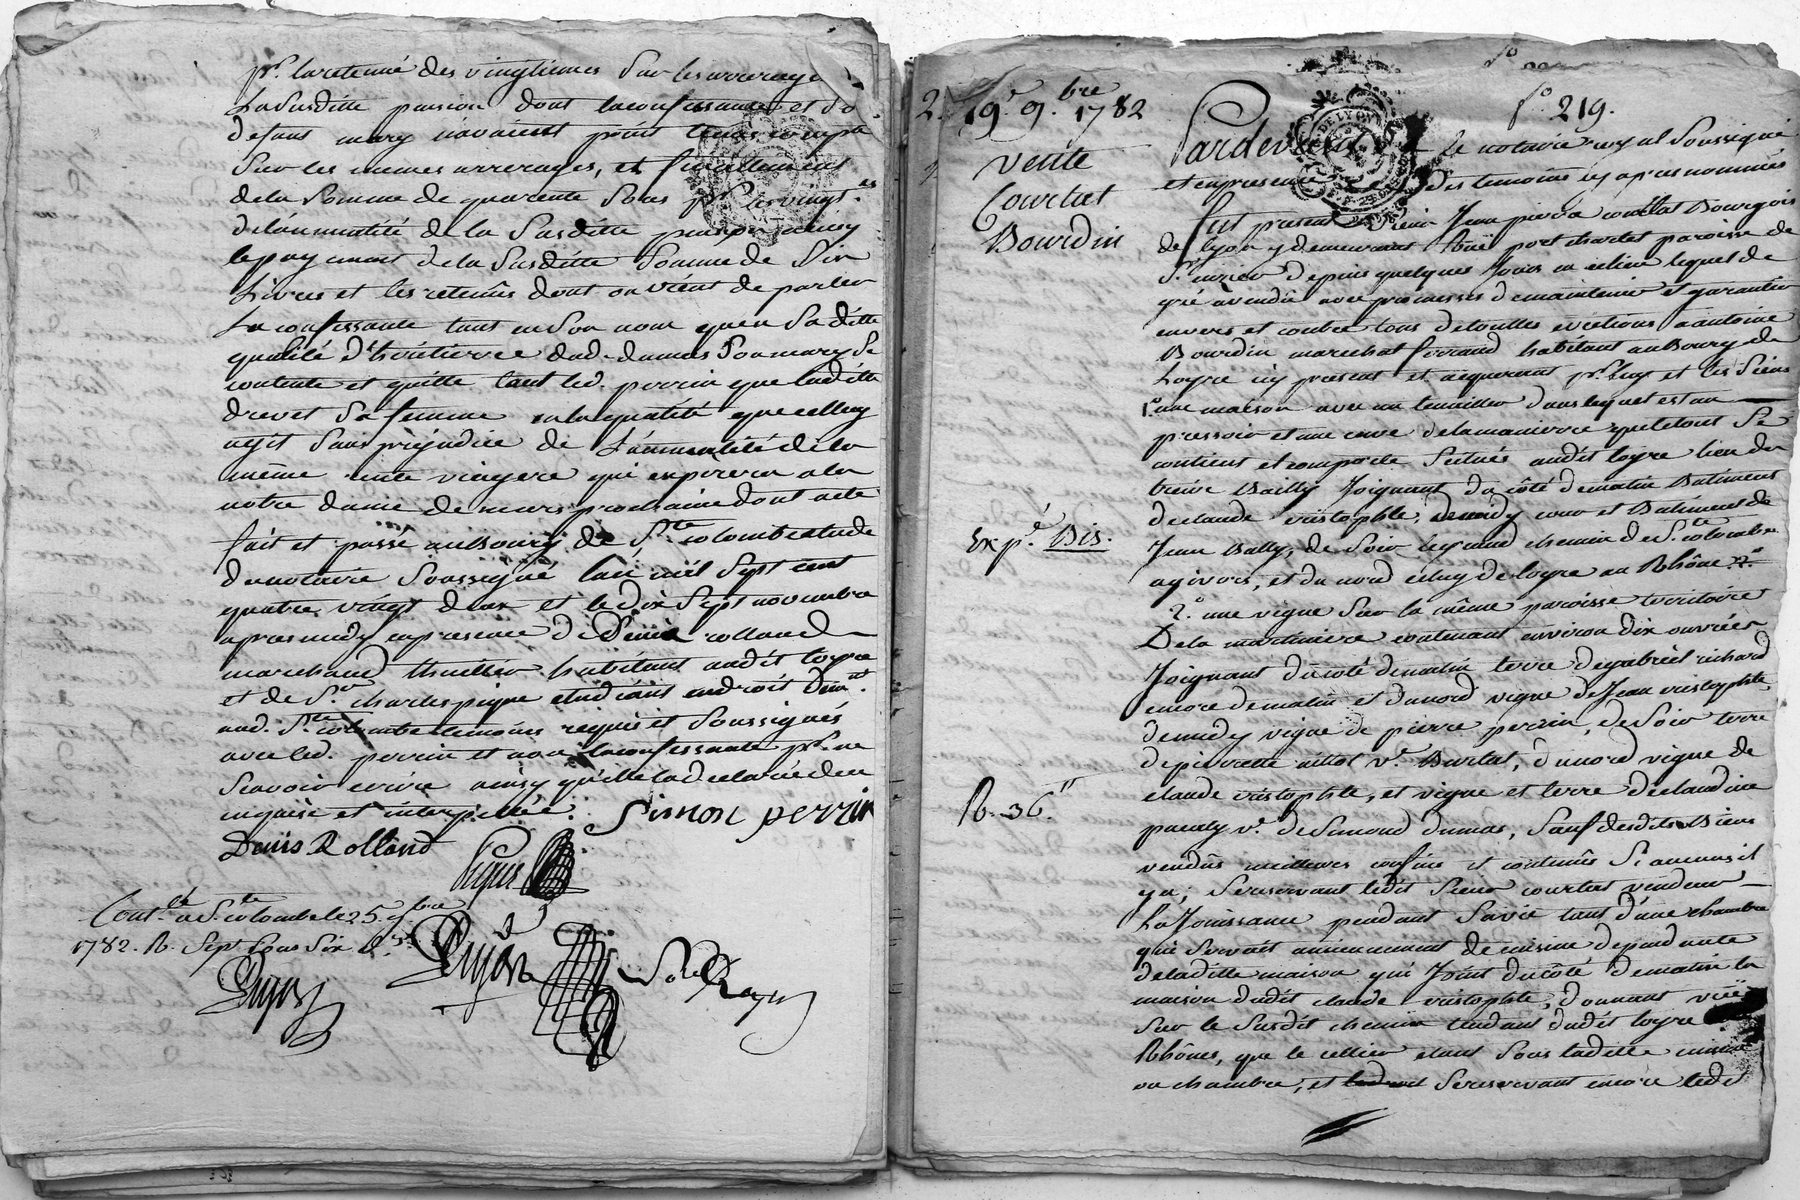 pr. la retenue des vingtiemes sur les arrerages
La susditte pension dont la confessante et so
defunt mary n'avaient point tenus compte
sur les memes arrerages, et finallement
de la somme de quarente sous pr. les vingt.es
de l'annuallité de la susditte pension
le payement de la susditte somme de six
Livres et les retenûes dont on vient de parler
La confessante tant en son nom qu'en sa ditte
qualité d'heritierre dud. dumas son mary se
contente et quitte tant led. perrin que laditte
drevet sa femme en la qualité que celluy
agit sans prejudice de L'annualité de la
même rente viagere qui expirera a la
notre dame de mars prochaine dont acte
fait et passé au Bourg de Ste. colombe etude
du notaire soussigné L'an mil sept cent
quatre vingt deux et le dix sept novembre
apres midy en presence de Denis rolland
marchand thuillier habitant audit loyre
et de Sr. charles pique etudiant en droit dem.nt
aud. Ste. colombe temoins requis et soussignés
avec led. perrin et non la confessante pr. ne
sçavoir ecrire ainsy qu'elle la declaré de ce
inquise et interpellée.
Simon perrin
Denis Rolland
Pique
Cont.lé a Ste. colombe le 25. 9bre
1782. R. Sept sous six d.rs
Dujast
Dujast
2.
19e. 9.bre 1782
vente
Courtet
Bourdin
fo. 219.
Pardevant le notaire royal soussigné
et en presence des temoins cy apres nommés
fut present sieur Jean pierre courtet Bourgois
de lyon y demeurant Ruë port charlet paroisse de
St. nizier depuis quelques jours en ce lieu lequel de
gré a vendu avec promesses de maintenir et garantir
envers et contre tous de touttes evictions a antoine
Bourdin marechal ferrand habitant au Bourg de
Loyre icy present et acquerant pr. luy et les siens
1o. une maison avec un tenaillier dans lequel est un
pressoir et une cuve de la maniere que le tout se
contient et comporte situés audit loyre lieu du
treive Bailly Joignant du côté de matin Batiment
de claude cristophle, de midy cour et Batiment de
Jean Bally, de soir le grand chemin de Ste. colombe
a givors, et du nord celuy de loyre au Rhône
Exp.é Bis.
2o. une vigne sur la même paroisse territoire
De la martiniere contenant environ dix ouvrées
Joignant du coté de matin terre de gabriel richard
encore de matin et du nord vigne de Jean cristophle,
de midy vigne de pierre perrin, de soir terre
de pierrette vve. Burlat, du nord vigne de
claude cristophle, et vigne et terre de claudine
R. 36.lt
vve. de simond dumas, sauf desdits Biens
vendus meilleurs confins et contenus si aucuns il
y a, se reservant ledit sieur courtet vendeur
La Jouissance pendant sa vie tant d'une chambre
qui servait anciennement de cuisine dependante
de laditte maison qui Joint du côté de matin la
maison dudit claude cristophle, donnant vüe
sur le susdit chemin tendant dudit loyre
Rhônes, que le cellier etant sous laditte cuisine
ou chambre, et se reservant encore ledit